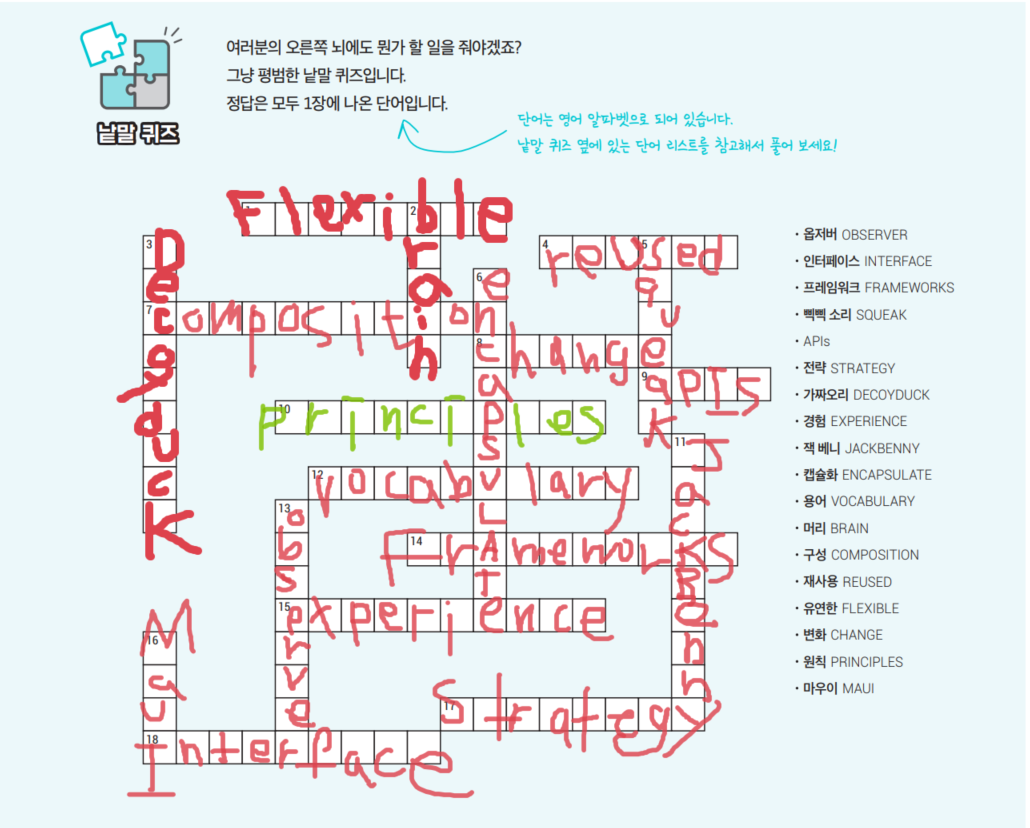 여러분의 오른쪽 뇌에도 뭔가 할 일을 줘야겠죠?
그냥 평범한 낱말 퀴즈입니다.
정답은 모두 1장에 나온 단어입니다.
낱말 퀴즈
단어는 영어 알파벳으로 되어 있습니다.
낱말 퀴즈 옆에 있는 단어 리스트를 참고해서 풀어 보세요!
1 Flexible
2 brain
3 Decoyduck
4 reused
5 squeak
6 encapsulATe
7 composition
8 change
9 apIs
10 principles
11 JackBenny
12 vocabulary
13 observer
14 FrAmeworks
15 experience
16 MauI
17 Strategy
18 Interface
· 옵저버 OBSERVER
· 인터페이스 INTERFACE
· 프레임워크 FRAMEWORKS
· 삑삑 소리 SQUEAK
· APIs
· 전략 STRATEGY
· 가짜오리 DECOYDUCK
· 경험 EXPERIENCE
· 잭 베니 JACKBENNY
· 캡슐화 ENCAPSULATE
· 용어 VOCABULARY
· 머리 BRAIN
· 구성 COMPOSITION
· 재사용 REUSED
· 유연한 FLEXIBLE
· 변화 CHANGE
· 원칙 PRINCIPLES
· 마우이 MAUI